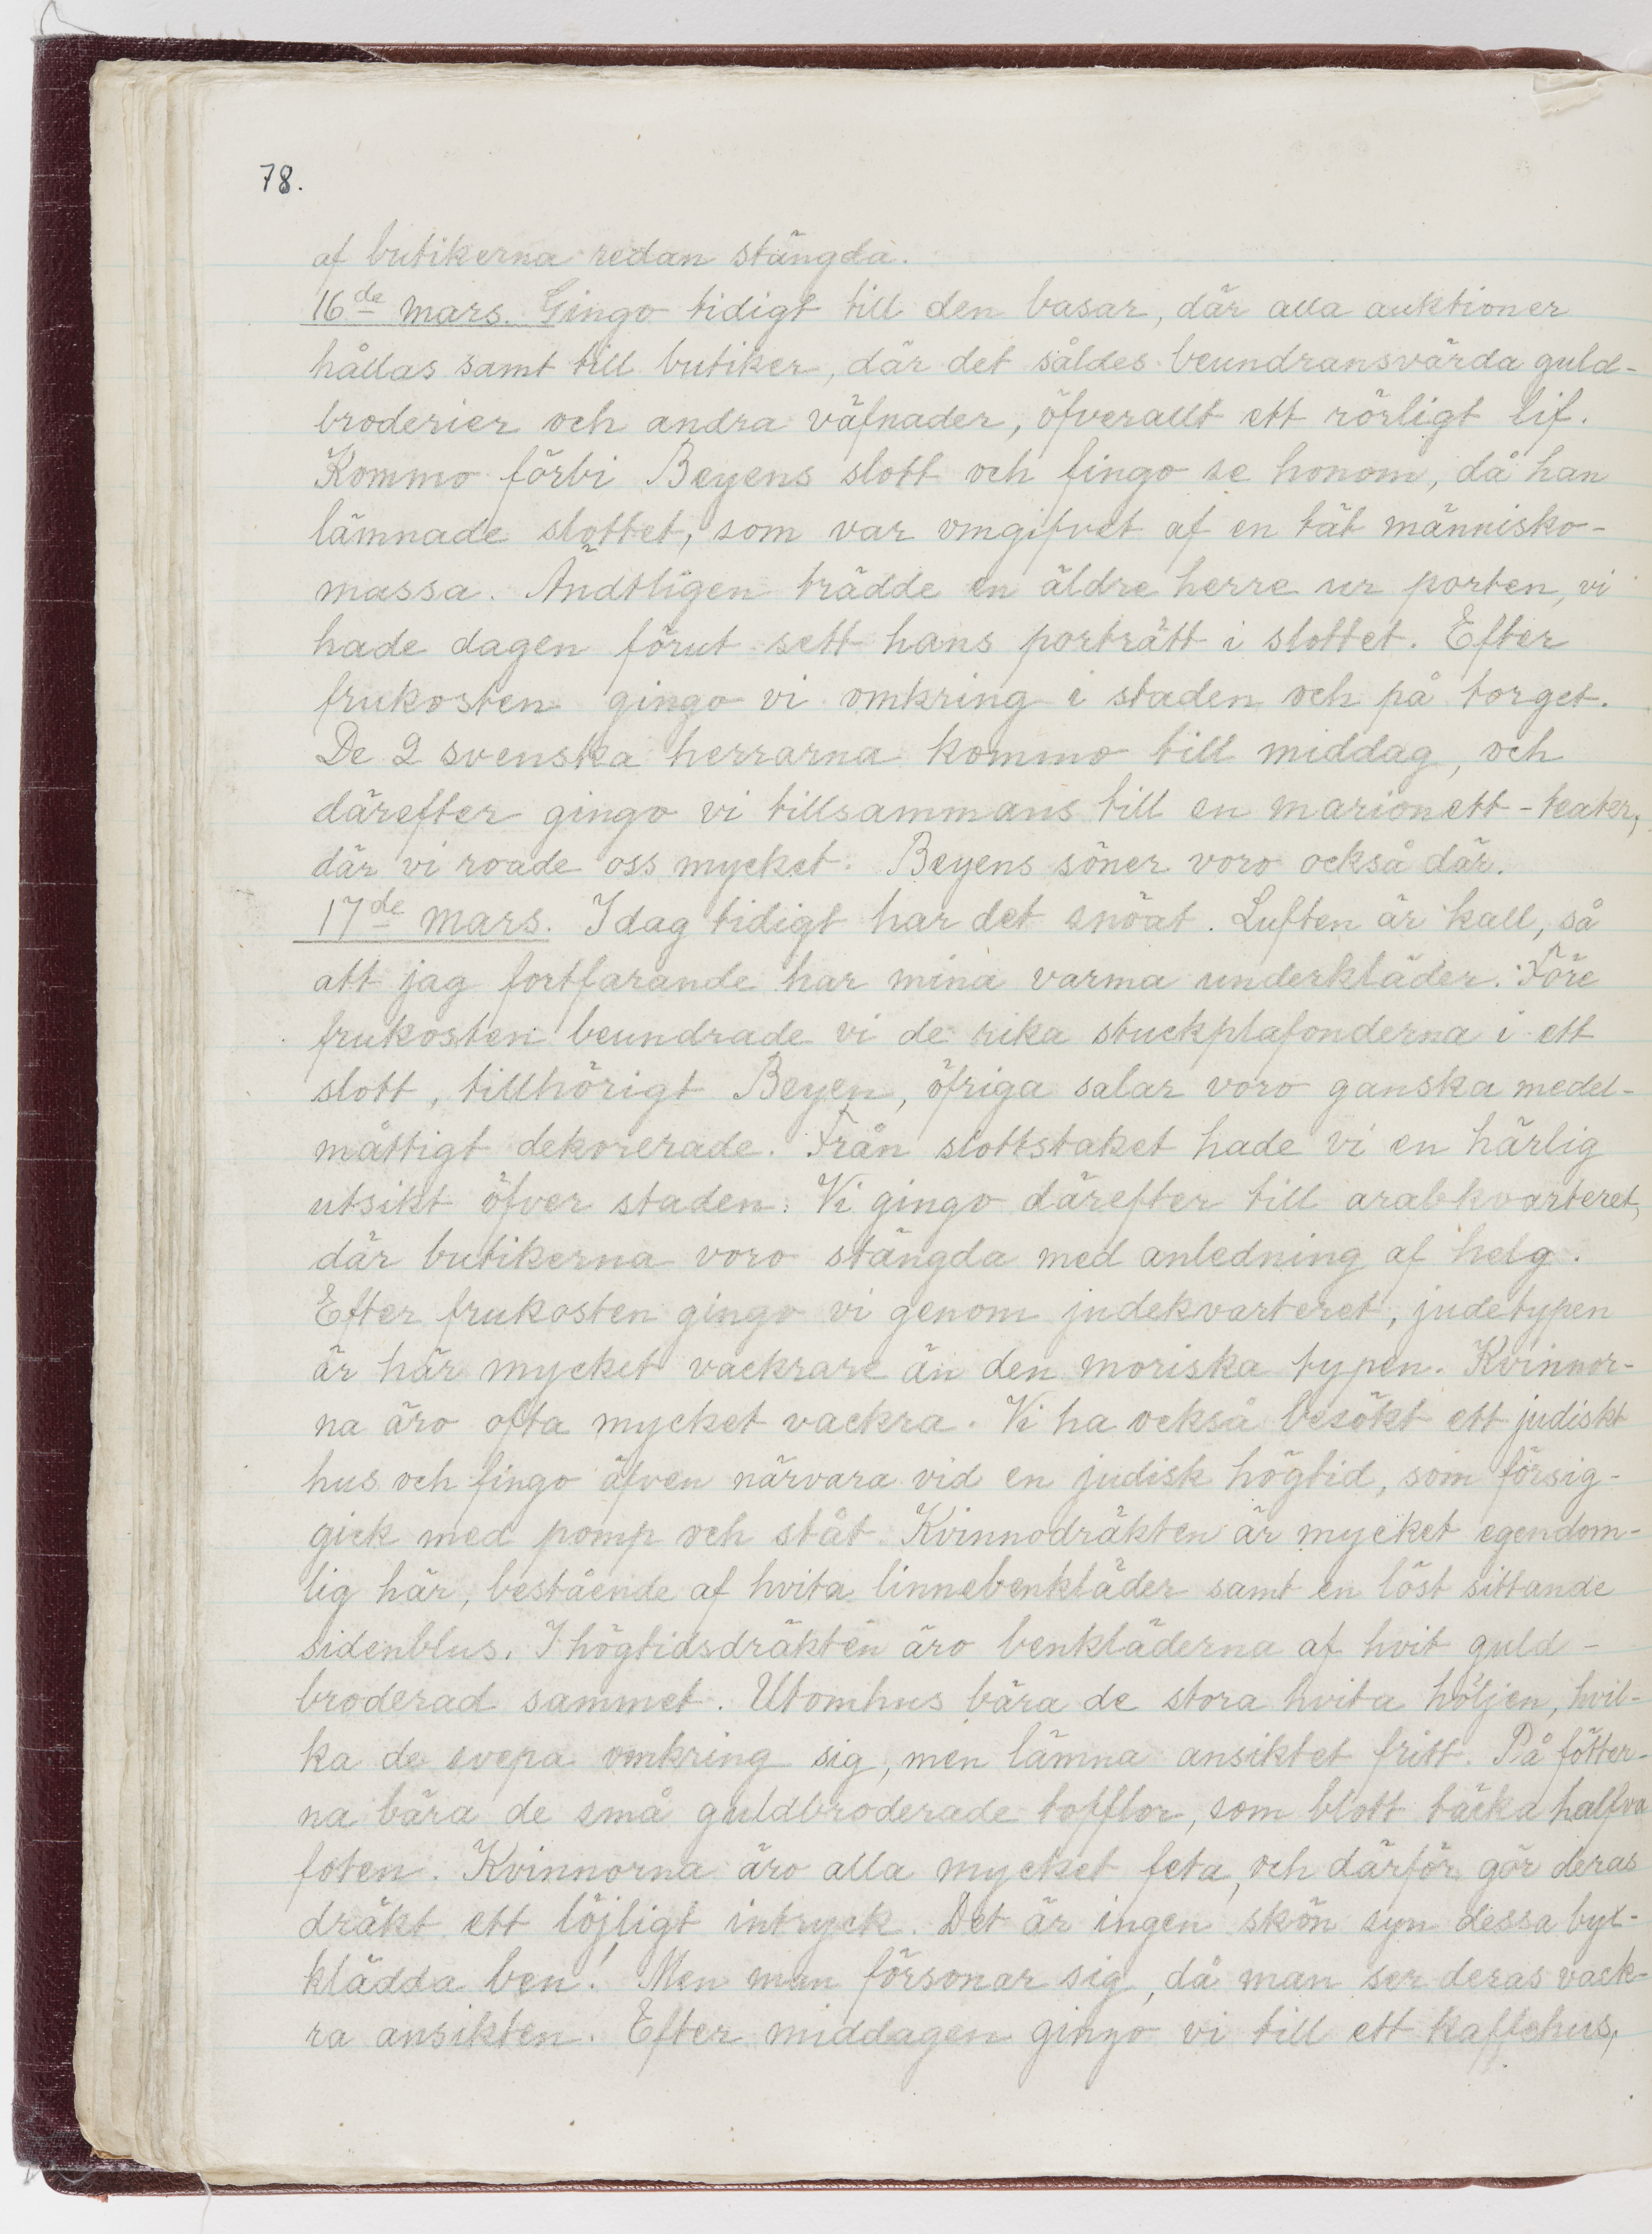 78.
af butikerna redan stängda.
16de mars. Gingo tidigt till den basar, där alla auktioner
hållas samt till butiker, där det såldes beundransvärda guld-
broderier och andra väfnader, öfverallt ett rörligt lif.
Kommo förbi Beyens slott och fingo se honom, då han
lämnade slottet, som var omgifvet af en tät människo-
massa. Ändtligen trädde en äldre herre ur porten, vi
hade dagen förut sett hans porträtt i slottet. Efter
frukosten gingo vi omkring i staden och på torget.
De 2 svenska herrarna kommo till middag, och
därefter gingo vi tillsammans till en marionett-teater,
där vi roade oss mycket. Beyens söner voro också där.
17de mars. Idag tidigt har det snöat. Luften är kall, så
att jag fortfarande har mina varma underkläder. Före
frukosten beundrade vi de rika stuckplafonderna i ett
slott, tillhörigt Beyen, öfriga salar voro ganska medel-
måttigt dekorerade. Från slottstaket hade vi en härlig
utsikt öfver staden. Vi gingo därefter till arabkvarteret,
där butikerna voro stängda med anledning af helg.
Efter frukosten gingo vi genom judekvarteret, judetypen
är här mycket vackrare än den moriska typen. Kvinnor-
na äro ofta mycket vackra. Vi ha också besökt ett judiskt
hus och fingo äfven närvara vid en judisk högtid, som försig-
gick med pomp och ståt. Kvinnodräkten är mycket egendom-
lig här, bestående af hvita linnebenkläder samt en löst sittande
sidenblus. I högtidsdräkten äro benkläderna af hvit guld-
broderad sammet. Utomhus bära de stora hvita höljen, hvil-
ka de svepa omkring sig, men lämna ansiktet fritt. På fötter-
na bära de små guldbroderade tofflor, som blott täcka halfva
foten. Kvinnorna äro alla mycket feta, och därför gör deras
dräkt ett löjligt intryck. Det är ingen skön syn dessa byx-
klädda ben! Men man försonar sig, då man ser deras vack-
ra ansikten. Efter middagen gingo vi till ett kaffehus,